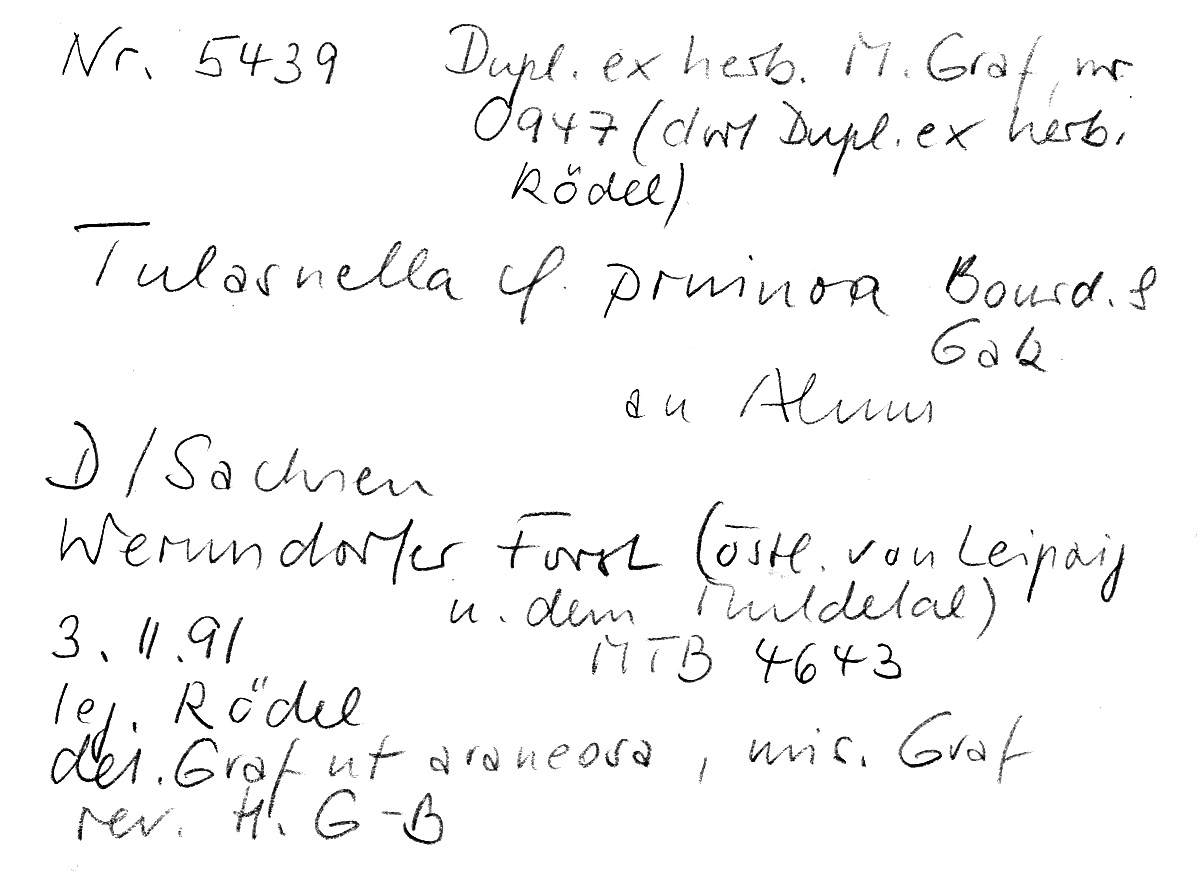 Nr. 5439 Dupl. ex herb. M. Graf, nr
0947 (dort Dupl. ex herb.
Rödel)
Tulasnella cf. pruinosa Bourd. &
Galz
an Alnus
D / Sachsen
Wermsdorfer Forst (östl. von Leipzig
u. dem Muldetal)
3. 11. 91
MTB 4643
leg. Rödel
det. Graf ut araneosa, mis. Graf
rev. H. G-B